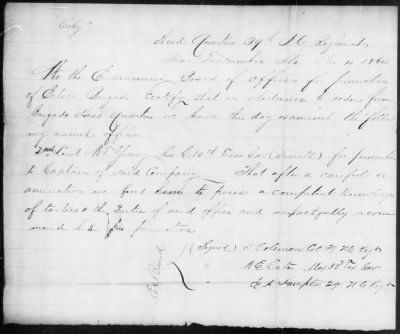 "Copy"
Head Quarters 39th N C Regiment
Near Tuscumbia Ala
We the Examining Board of officers for promotion
of Ector's Brigade Certify that in obedience to orders from
Brigade Head Quarters we have this day examined the follow
ing named officer
2nd Lieut Wm Young Co (Dismtd) for promotion
to Captain of said Company That after a careful ex
amination we find him to possess a competent knowledge
of tactics & the duties of said office and respectfully recom
mend his for promotion
(Signed) D Coleman Col 39 N C Regt
" Maj
" 29 N C Regt
Ex Board